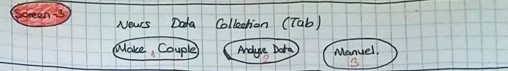 Screen-3
News Data Collection (Tab)
Make Couple Andyse Data Manuel.
1 2 3